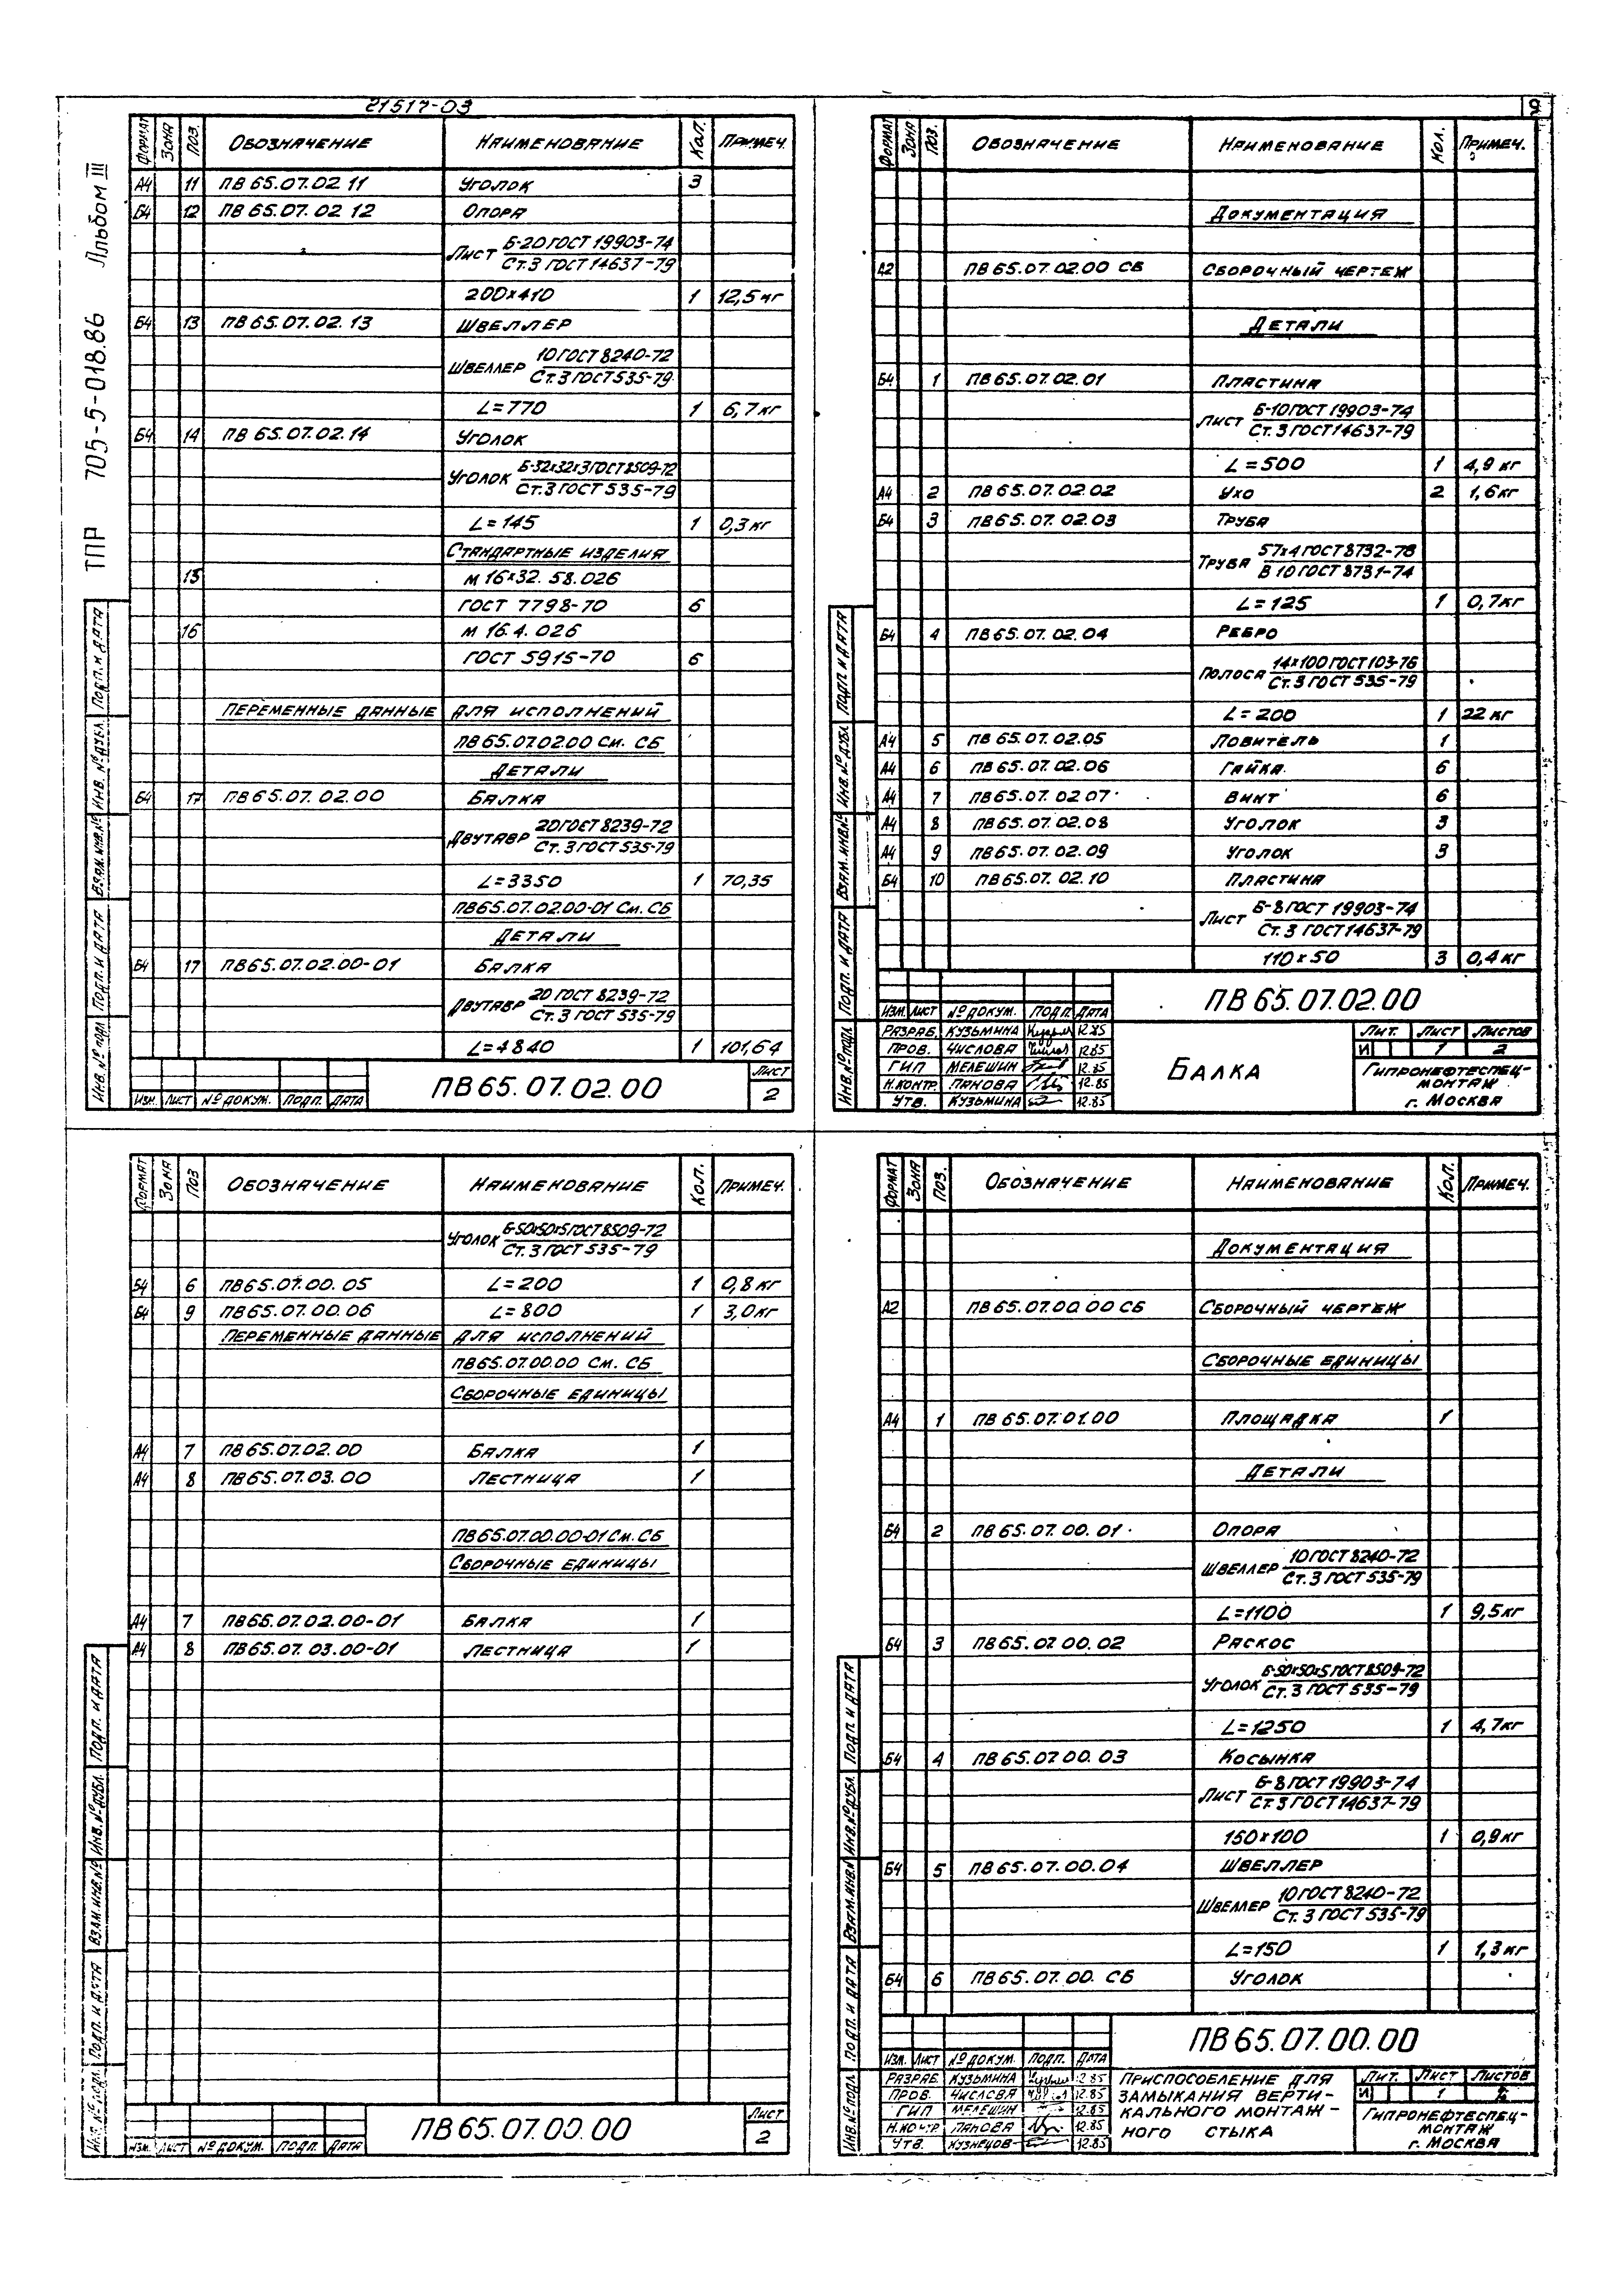 21517-03
9
ТПР 705-5-018.86 Альбом III
Формат Зона Поз. Обозначение Наименование Кол. Примеч.
А4 11 ПВ 65.07.02 11 Уголок 3
Б4 12 ПВ 65.07.02 12 Опора
Лист Б-20 ГОСТ 19903-74
Ст.3 ГОСТ 14637-79
200х410 1 12,5 кг
Б4 13 ПВ 65.07.02.13 Швеллер
Швеллер 10 ГОСТ 8240-72
Ст.3 ГОСТ 535-79
L=770 1 6,7 кг
Б4 14 ПВ 65.07.02.14 Уголок
Уголок Б-32х32х3 ГОСТ 8509-72
Ст.3 ГОСТ 535-79
L=145 1 0,3 кг
Стандартные изделия
15 М 16х32. 58.026
ГОСТ 7798-70 6
16 М 16.4. 026
ГОСТ 5915-70 6
Переменные данные для исполнений
ПВ 65.07.02.00 См. СБ
Детали
Б4 17 ПВ 65.07.02.00 Балка
Двутавр 20 ГОСТ 8239-72
Ст.3 ГОСТ 535-79
L=3350 1 70,35
ПВ65.07.02.00-01 См. СБ
Детали
Б4 17 ПВ65.07.02.00-01 Балка
Двутавр 20 ГОСТ 8239-72
Ст.3 ГОСТ 535-79
L=4840 1 101,64
Изм. Лист № докум. Подп. Дата
ПВ 65.07.02.00
Лист
2
Инв. № подл. Подп. и дата Взам. инв. № Инв. № дубл. Подп. и дата
Формат Зона Поз. Обозначение Наименование Кол. Примеч.
Документация
А2 ПВ 65.07.02.00 СБ Сборочный чертеж
Детали
Б4 1 ПВ 65.07.02.01 Пластина
Лист Б-10 ГОСТ 19903-74
Ст.3 ГОСТ 14637-79
L=500 1 4,9 кг
А4 2 ПВ 65.07.02.02 Ухо 2 1,6 кг
Б4 3 ПВ 65.07.02.03 Труба
Труба 57х4 ГОСТ 8732-78
В 10 ГОСТ 8731-74
L=125 1 0,7 кг
Б4 4 ПВ 65.07.02.04 Ребро
Полоса 14х100 ГОСТ 103-76
Ст.3 ГОСТ 535-79
L=200 1 22 кг
А4 5 ПВ 65.07.02.05 Ловитель 1
А4 6 ПВ 65.07.02.06 Гайка 6
А4 7 ПВ 65.07.02 07 Винт 6
А4 8 ПВ 65.07.02.08 Уголок 3
А4 9 ПВ 65.07.02.09 Уголок 3
Б4 10 ПВ 65.07.02.10 Пластина
Лист Б-8 ГОСТ 19903-74
Ст.3 ГОСТ 14637-79
110х50 3 0,4 кг
ПВ 65.07.02.00
Изм. Лист № докум. Подп. Дата
Разраб. Кузьмина 12.85
Пров. Числова 12.85
ГИП Мелешин 12.85
Н.контр. Панова 12.85
Утв. Кузьмина 12.85
Балка
Лит. Лист Листов
И 1 2
Гипронефтеспец-
монтаж
г. Москва
Инв. № подл. Подп. и дата Взам. инв. № Инв. № дубл. Подп. и дата
Формат Зона Поз Обозначение Наименование Кол. Примеч.
Уголок Б-50х50х5 ГОСТ 8509-72
Ст.3 ГОСТ 535-79
Б4 6 ПВ65.07.00.05 L=200 1 0,8 кг
Б4 9 ПВ65.07.00.06 L=800 1 3,0 кг
Переменные данные для исполнений
ПВ65.07.00.00 См. СБ
Сборочные единицы
А4 7 ПВ65.07.02.00 Балка 1
А4 8 ПВ65.07.03.00 Лестница 1
ПВ65.07.00.00-01 См. СБ
Сборочные единицы
А4 7 ПВ65.07.02.00-01 Балка 1
А4 8 ПВ65.07.03.00-01 Лестница 1
Изм. Лист № докум. Подп. Дата
ПВ 65.07.00.00
Лист
2
Инв. № подл. Подп. и дата Взам. инв. № Инв. № дубл. Подп. и дата
Формат Зона Поз. Обозначение Наименование Кол. Примеч.
Документация
А2 ПВ 65.07.00.00 СБ Сборочный чертеж
Сборочные единицы
А4 1 ПВ 65.07.01.00 Площадка 1
Детали
Б4 2 ПВ 65.07.00.01 Опора
Швеллер 10 ГОСТ 8240-72
Ст.3 ГОСТ 535-79
L=1100 1 9,5 кг
Б4 3 ПВ 65.07.00.02 Раскос
Уголок Б-50х50х5 ГОСТ 8509-72
Ст.3 ГОСТ 535-79
L=1250 1 4,7 кг
Б4 4 ПВ 65.07.00.03 Косынка
Лист Б-8 ГОСТ 19903-74
Ст.3 ГОСТ 14637-79
150х100 1 0,9 кг
Б4 5 ПВ 65.07.00.04 Швеллер
Швеллер 10 ГОСТ 8240-72
Ст.3 ГОСТ 535-79
L=150 1 1,3 кг
Б4 6 ПВ 65.07.00. СБ Уголок
ПВ 65.07.00.00
Изм. Лист № докум. Подп. Дата
Разраб. Кузьмина 12.85
Пров. Числова 12.85
ГИП Мелешин 12.85
Н.контр. Панова 12.85
Утв. Кузнецов 12.85
Приспособление для
замыкания верти-
кального монтаж-
ного стыка
Лит. Лист Листов
И 1 2
Гипронефтеспец-
монтаж
г. Москва
Инв. № подл. Подп. и дата Взам. инв. № Инв. № дубл. Подп. и дата